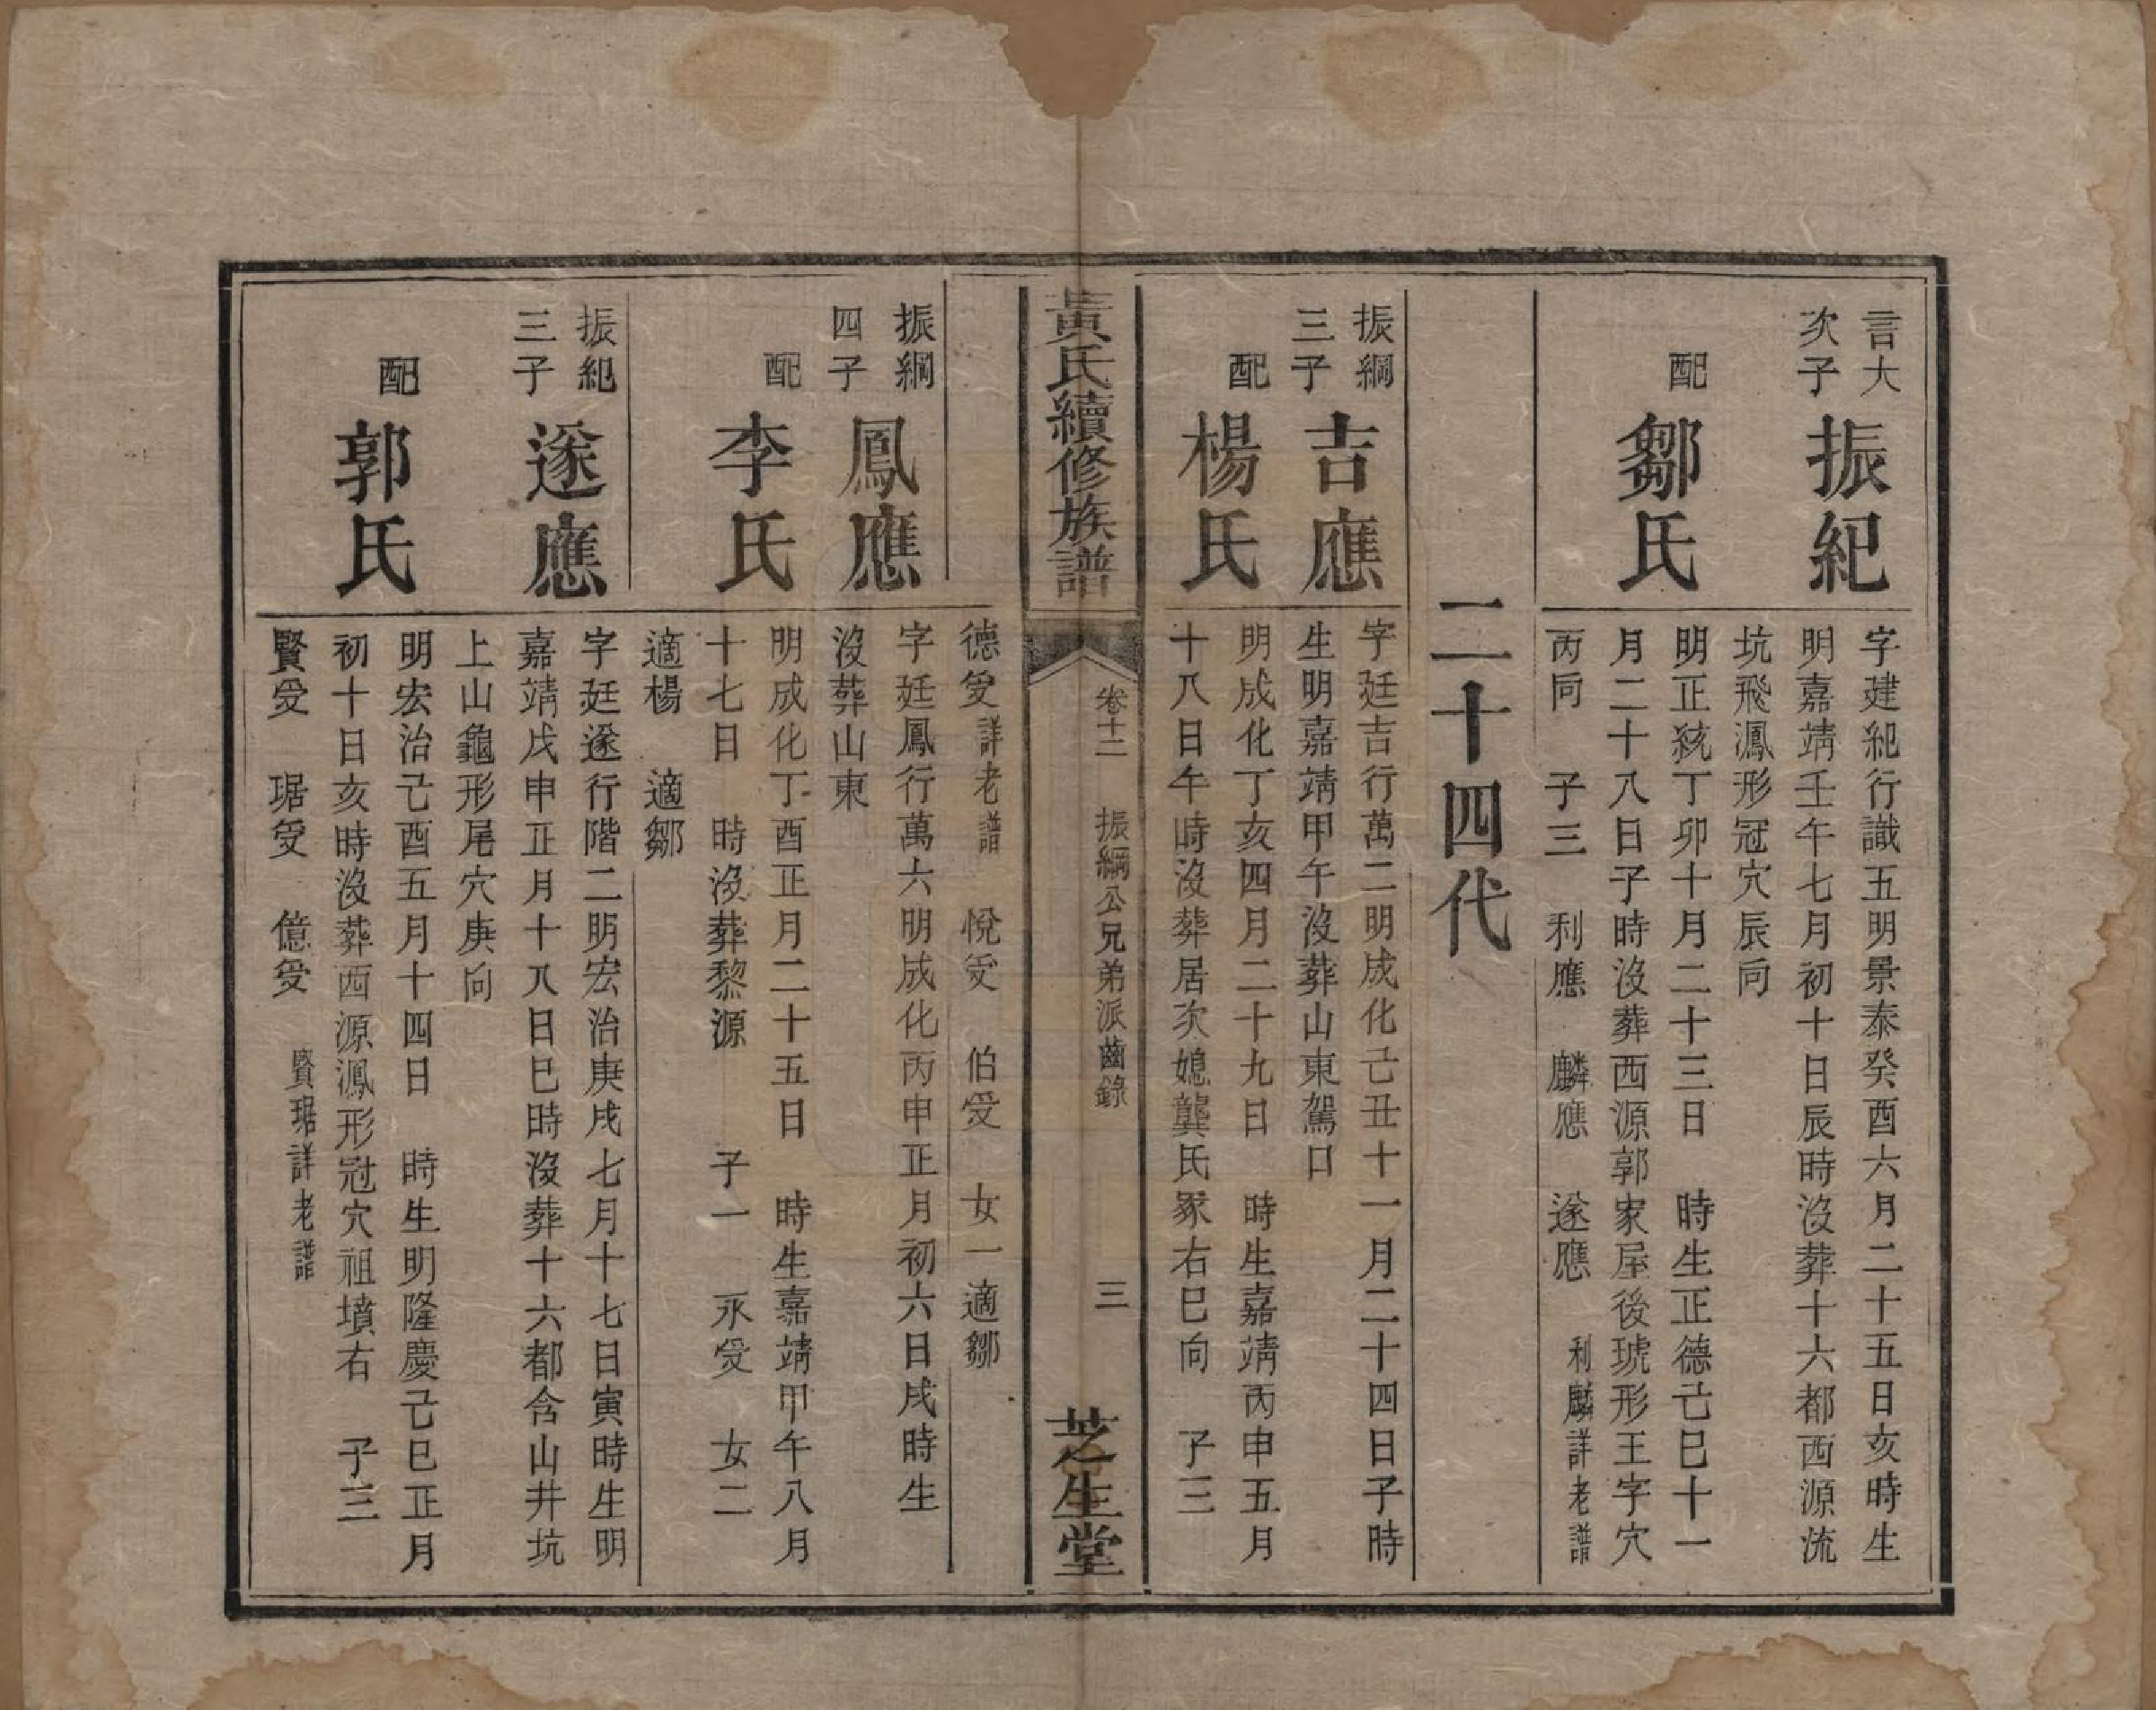 言大
次子
振紀
字建紀行識五明景泰癸酉六月二十五日亥時生
明嘉靖壬午七月初十日辰時沒葬十六都西源流
坑飛鳳形冠穴辰向
配
鄒氏
明正統丁卯十月二十三日 時生正德己巳十一
月二十八日子時沒葬西源郭家屋後琥形王字穴
丙向 子三 利應 麟應 遂應 利麟詳老譜
二十四代
振綱
三子
吉應
字廷吉行萬二明成化己丑十一月二十四日子時
生明嘉靖甲午沒葬山東駕口
配
楊氏
明成化丁亥四月二十九日 時生嘉靖丙申五月
十八日午時沒葬居次媳龔氏冢右巳向 子三
黃氏續修族譜
卷十二 振綱公兄弟派齒錄 三
芝生堂
德受詳老譜 悅受 伯受 女一適鄒
振綱
四子
鳳應
字廷鳳行萬六明成化丙申正月初六日戌時生
沒葬山東
配
李氏
明成化丁酉正月二十五日 時生嘉靖甲午八月
十七日 時沒葬黎源 子一 永受 女二
適楊 適鄒
振紀
三子
遂應
字廷遂行階二明宏治庚戌七月十七日寅時生明
嘉靖戊申正月十八日巳時沒葬十六都含山井坑
上山龜形尾穴庚向
配
郭氏
明宏治己酉五月十四日 時生明隆慶己巳正月
初十日亥時沒葬西源鳳形冠穴祖墳右 子三
賢受 琚受 億受 賢琚詳老譜